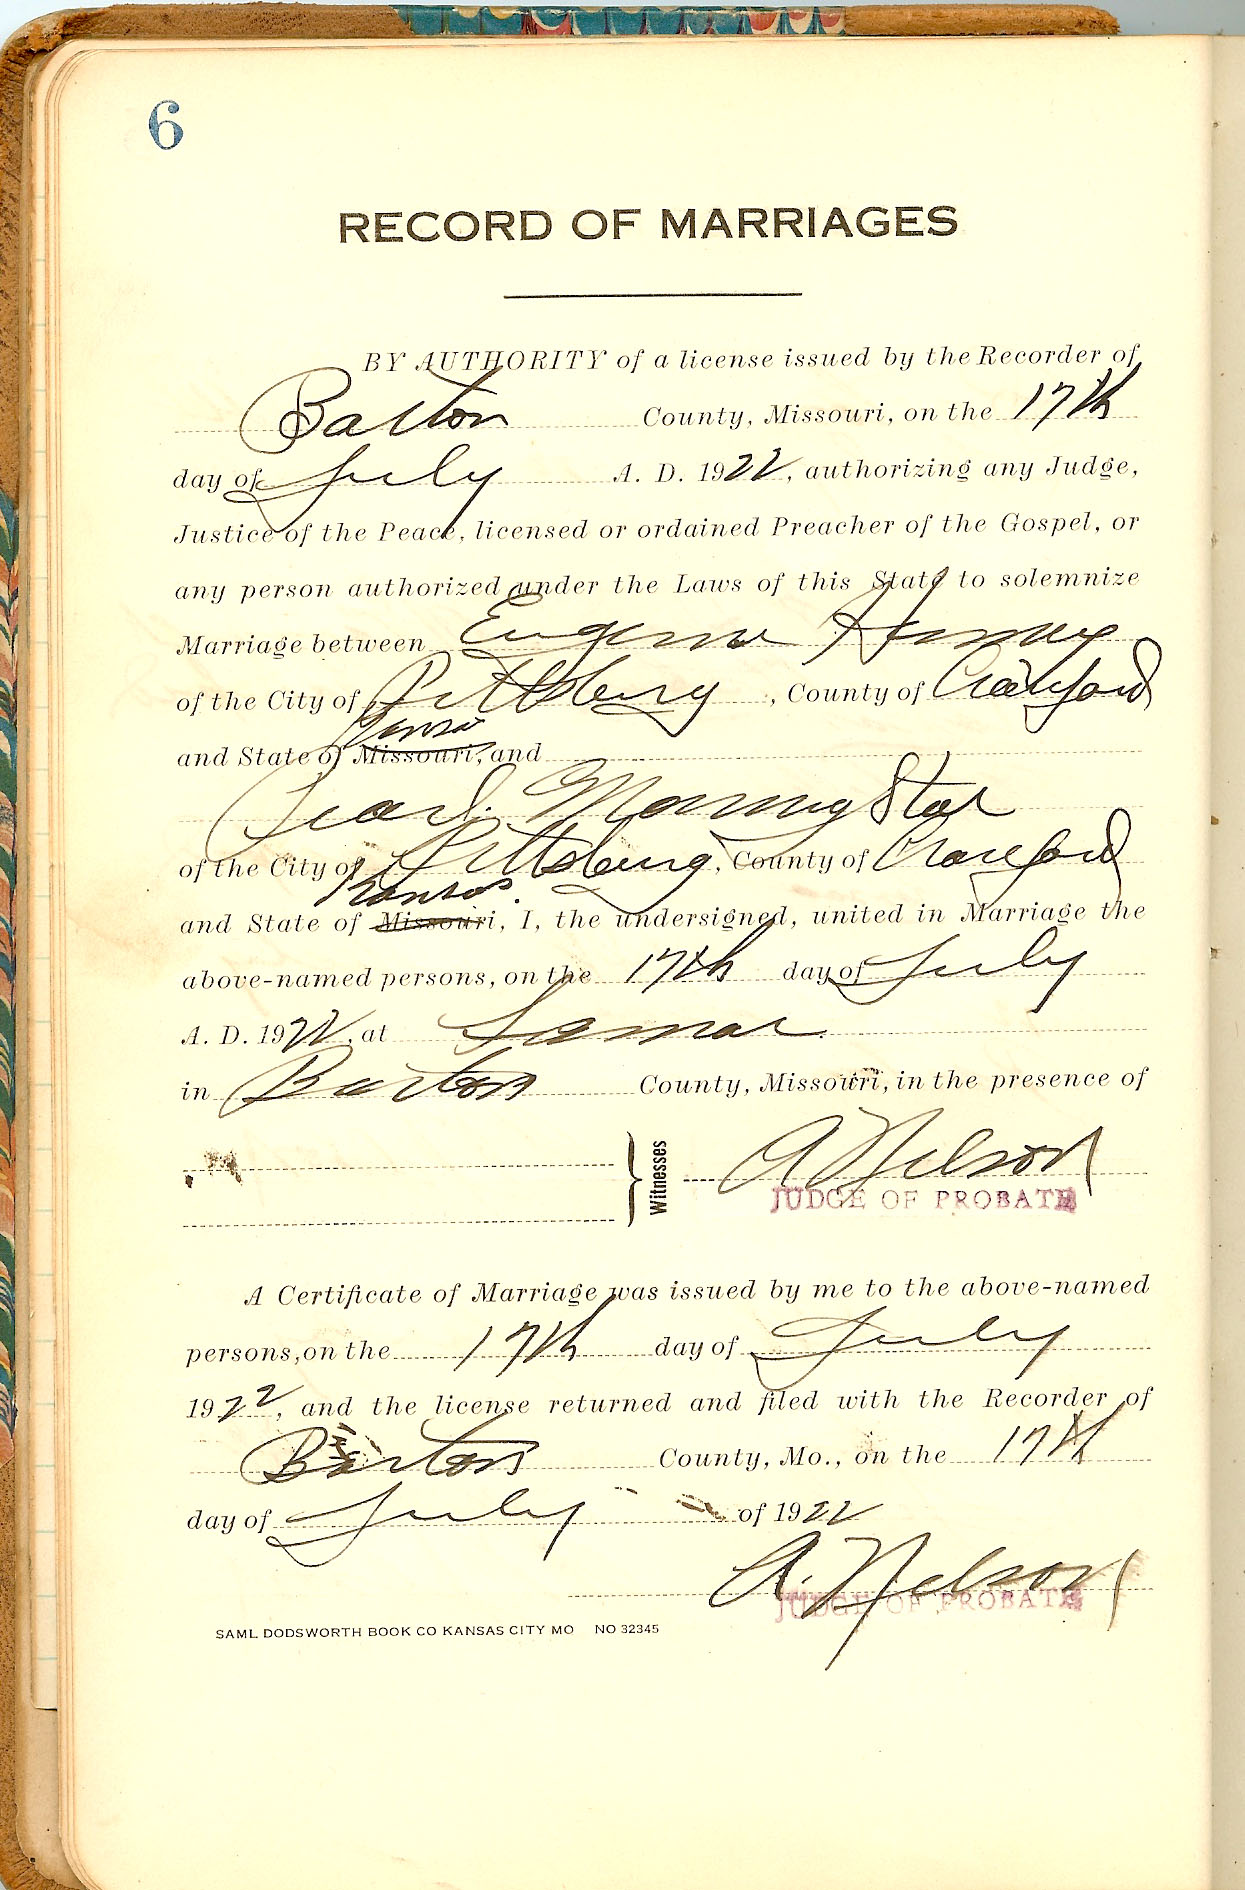 6
RECORD OF MARRIAGES
BY AUTHORITY of a license issued by the Recorder of
Barton County, Missouri, on the 17th
day of July A. D. 1922, authorizing any Judge,
Justice of the Peace, licensed or ordained Preacher of the Gospel, or
any person authorized under the Laws of this State to solemnize
Marriage between Eugene
of the City of Pittsburg, County of Crawford
Kansas
and State of Missouri, and
Pearl Morning Star
of the City of Pittsburg, County of Crawford
Kansas.
and State of Missouri, I, the undersigned, united in Marriage the
above-named persons, on the 17th day of July
A. D. 1922, at Lamar
in Barton County, Missouri, in the presence of
Witnesses A Nelson
JUDGE OF PROBATE
A Certificate of Marriage was issued by me to the above-named
persons, on the 17th day of July
1922, and the license returned and filed with the Recorder of
Barton County, Mo., on the 17th
day of July of 1922
A. Nelson
JUDGE OF PROBATE
SAML DODSWORTH BOOK CO KANSAS CITY MO NO 32345